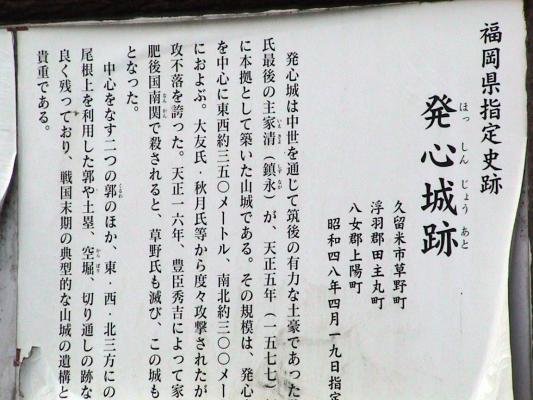 福岡県指定史跡
ほっしんじょうあと
発心城跡
久留米市草野町
浮羽郡田主丸町
八女郡上陽町
昭和四八年四月一九日指定
発心城は中世を通じて筑後の有力な土豪であった
氏最後の主家清（鎮永）が、天正五年（一五七七）
に本拠として築いた山城である。その規模は、発心
を中心に東西約三五〇メートル、南北約三〇〇メー
におよぶ。大友氏・秋月氏等から度々攻撃されたが
攻不落を誇った。天正一六年、豊臣秀吉によって家
肥後国南関で殺されると、草野氏も滅び、この城も
となった。
中心をなす二つの郭のほか、東・西・北三方にの
尾根上を利用した郭や土塁、空堀、切り通しの跡な
良く残っており、戦国末期の典型的な山城の遺構と
貴重である。